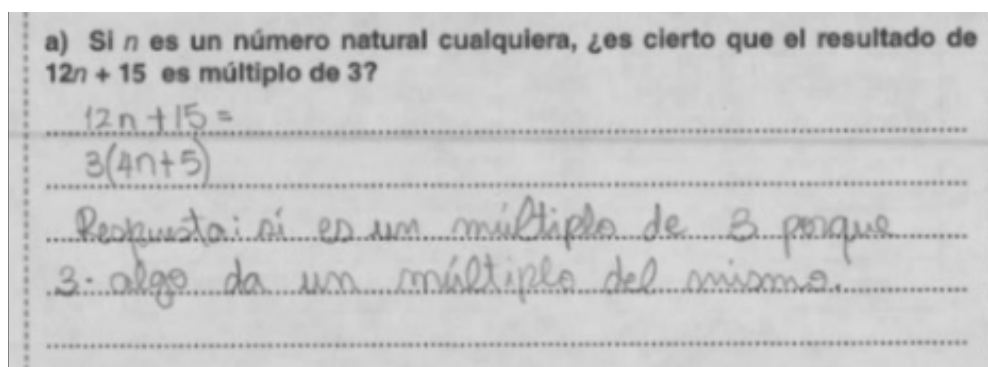 a) Si n es un número natural cualquiera, ¿es cierto que el resultado de
12n + 15 es múltiplo de 3?
12n + 15 =
3(4n+5)
Respuesta: sí es un múltiplo de 3 porque
3· algo da un múltiplo del mismo.